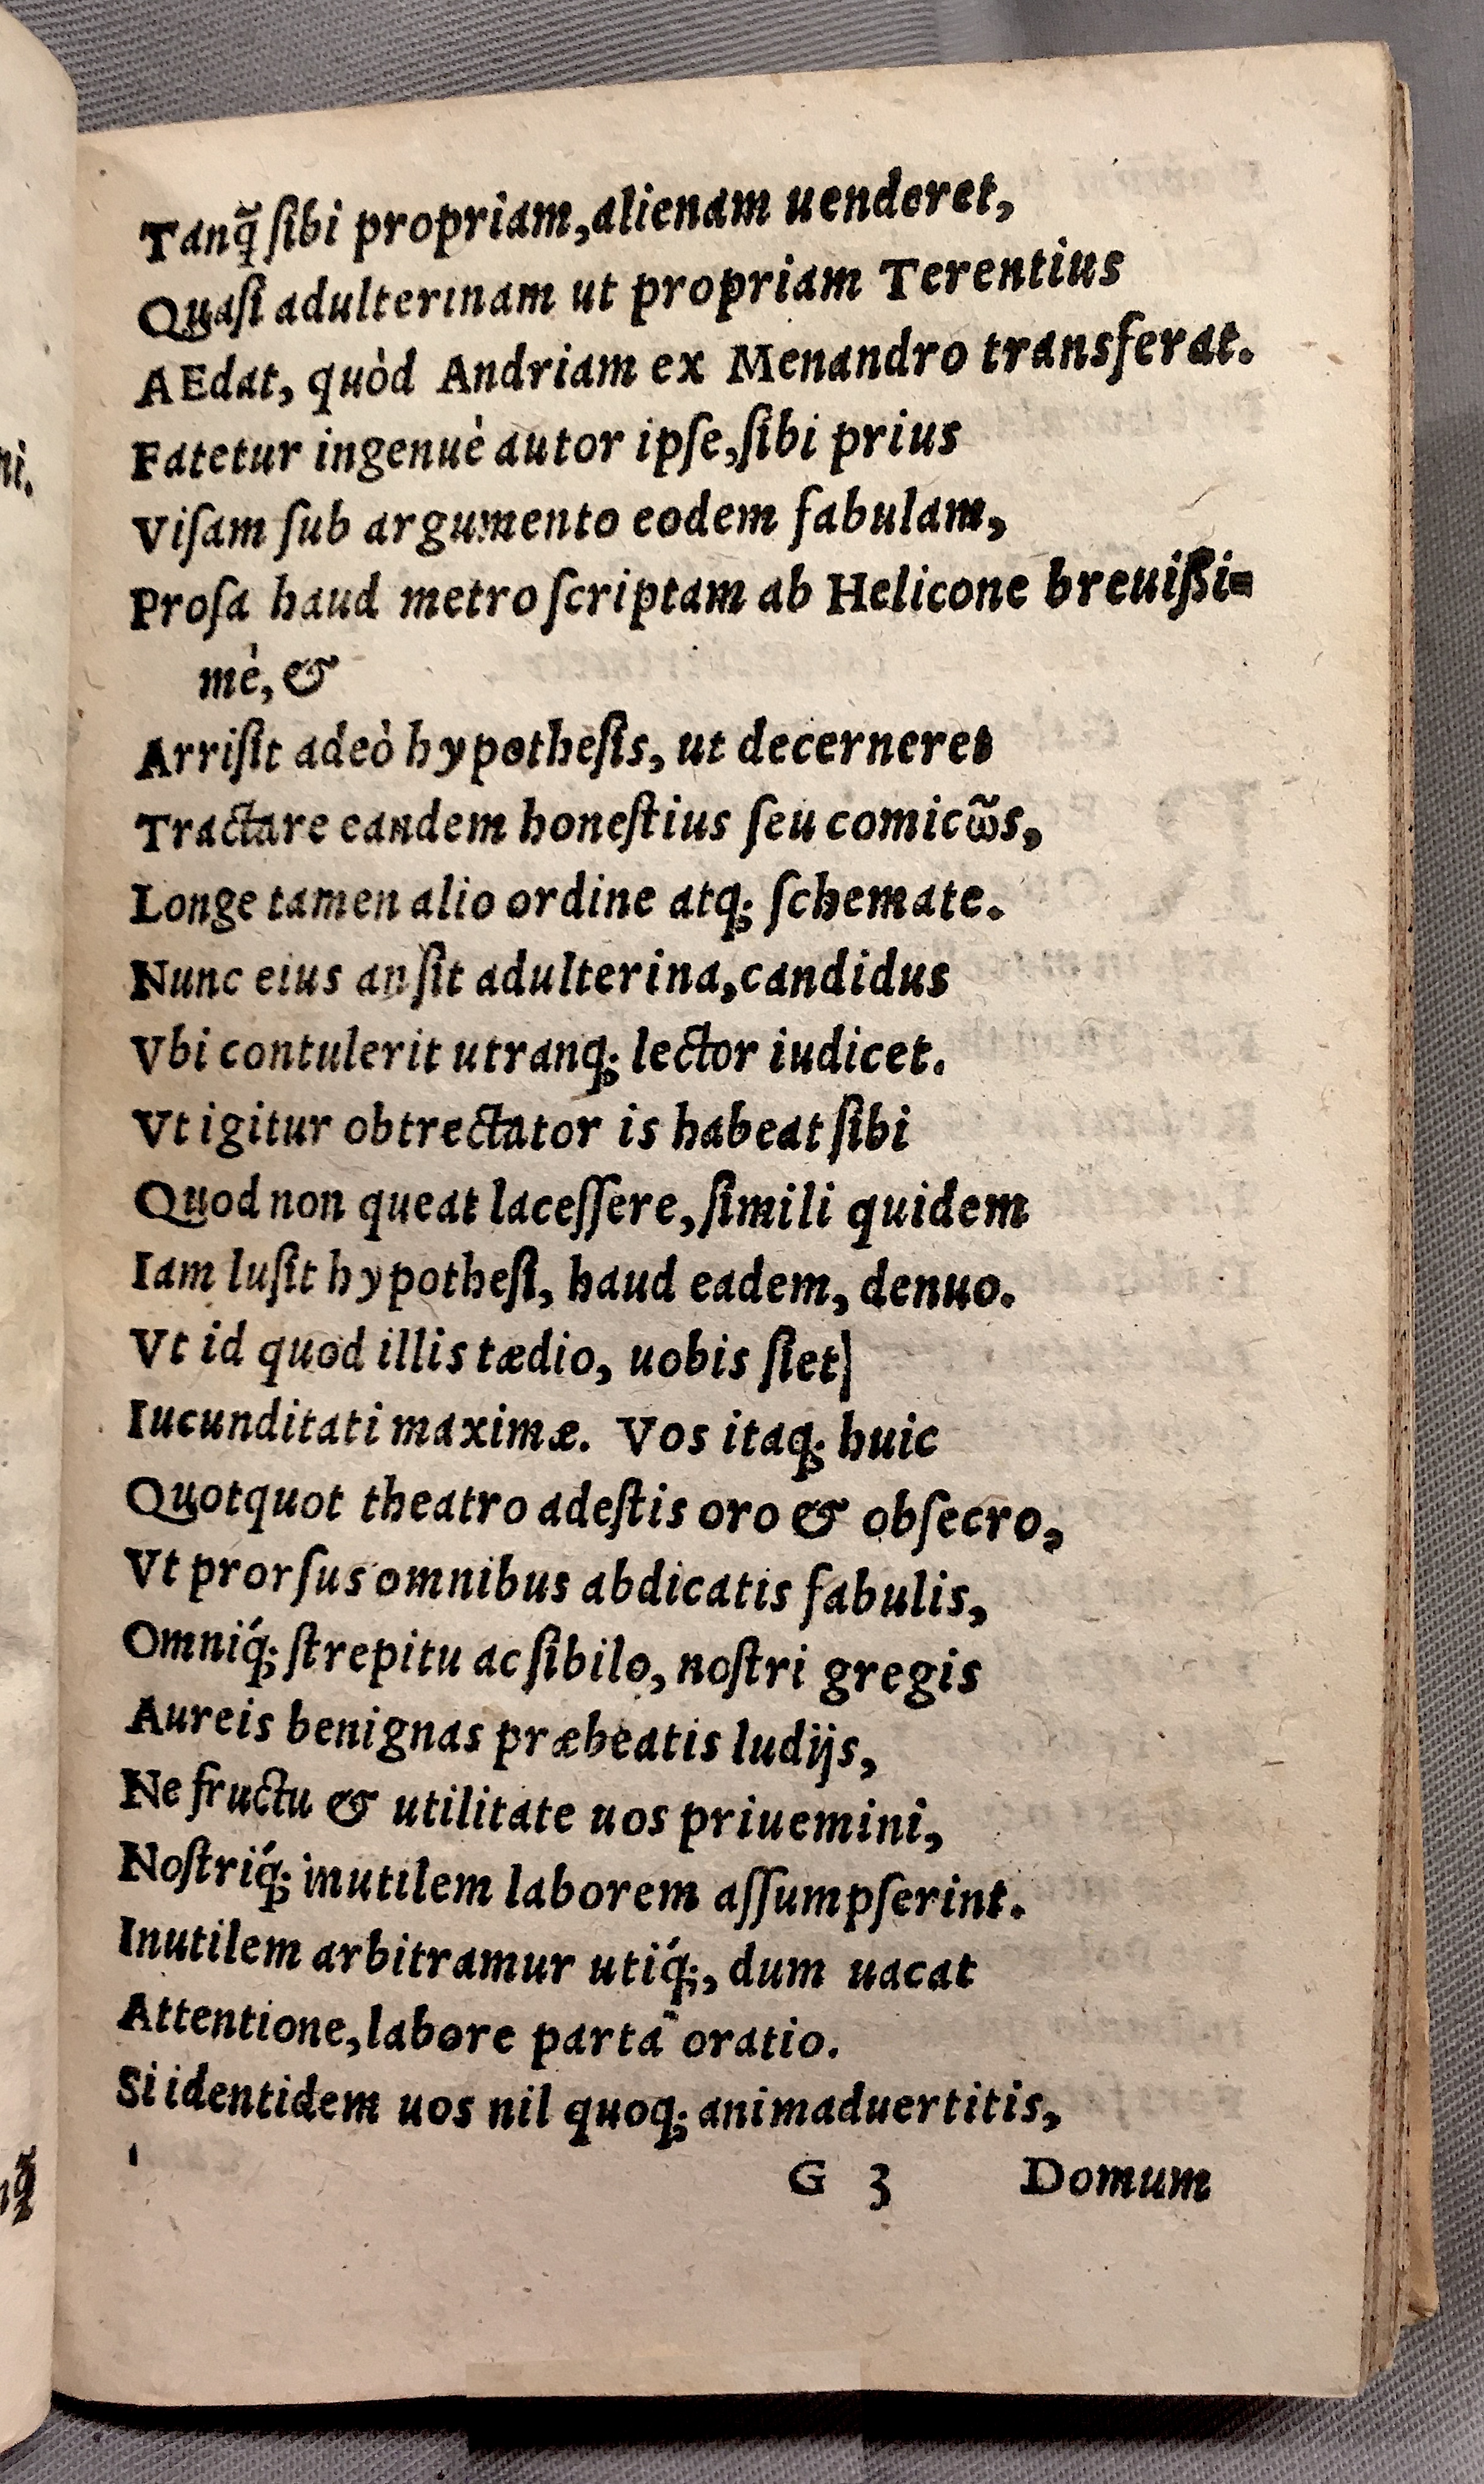 Tanq̃ ſibi propriam, alienam uenderet,
Quaſi adulterinam ut propriam Terentius
AEdat, quòd Andriam ex Menandro transferat.
Fatetur ingenuè autor ipſe, ſibi prius
Viſam ſub argumento eodem fabulam,
Proſa haud metro ſcriptam ab Helicone breuißi=
mè, &
Arriſit adeò hypotheſis, ut decerneret
Tractare eandem honeſtius ſeu comicω̃s,
Longe tamen alio ordine atq; ſchemate.
Nunc eius an ſit adulterina, candidus
Vbi contulerit utranq; lector iudicet.
Vt igitur obtrectator is habeat ſibi
Quod non queat laceſſere, ſimili quidem
Iam luſit hypotheſi, haud eadem, denuo.
Vt id quod illis tædio, uobis ſiet|
Iucunditati maximæ. Vos itaq; huic
Quotquot theatro adeſtis oro & obſecro,
Vt prorſus omnibus abdicatis fabulis,
Omniq́; ſtrepitu ac ſibilo, noſtri gregis
Aureis benignas præbeatis ludijs,
Ne fructu & utilitate uos priuemini,
Noſtriq́; inutilem laborem aſſumpſerint.
Inutilem arbitramur utiq́;, dum uacat
Attentione, labore parta oratio.
Si identidem uos nil quoq; animaduertitis,
G 3 Domum
ni.